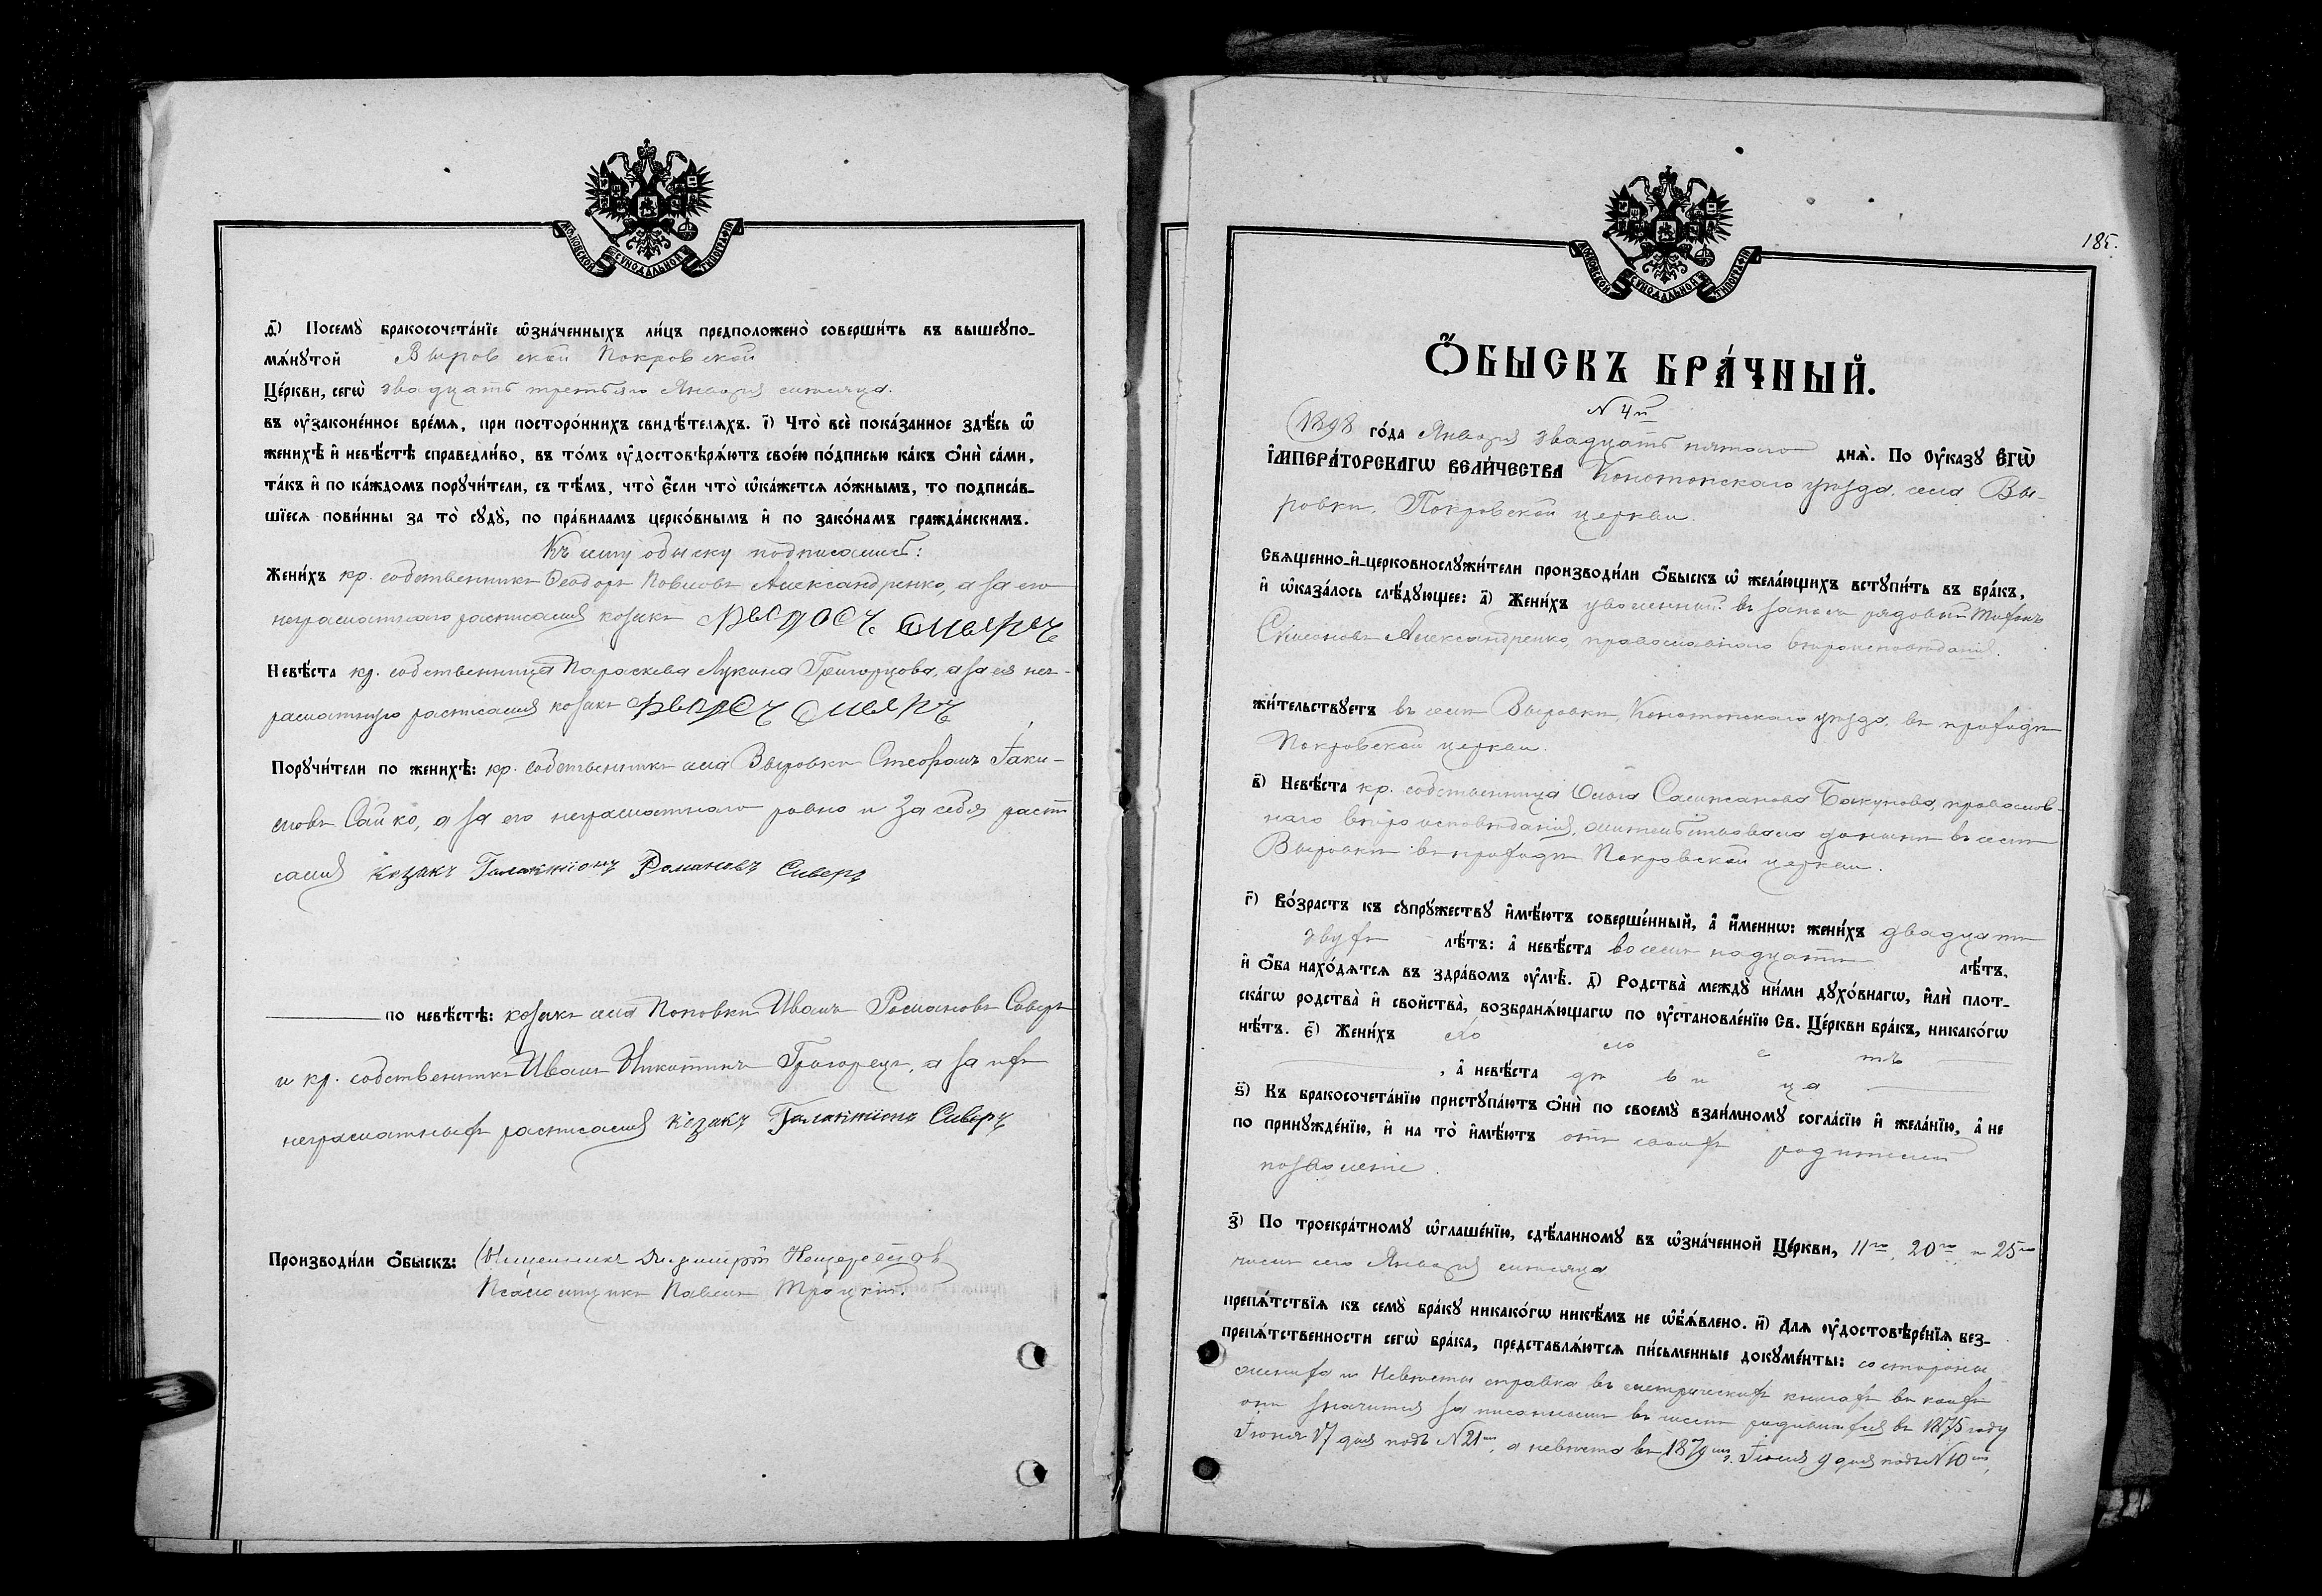 МОСКОВСКОЙ СѴНОДАЛЬНОЙ ТИПОГРАФІИ
ѳ҃) Посемꙋ̀ бракосочета́нїе ѡ҆зна́ченныхъ ли́цъ предположено̀ соверши́ть въ вышеꙋпо-
мѧ́нꙋтой Выровской Покровской
Це́ркви, сегѡ̀ двадцать третьяго Января мѣсяца.
въ ᲂу҆законе́нное вре́мѧ, при посторо́ннихъ свидѣ́телѧхъ. і҃) Что̀ всѐ пока́занное здѣ́сь ѡ҆
женихѣ̀ и҆ невѣ́стѣ справедли́во, въ то́мъ ᲂу҆достовѣрѧ́ютъ свое́ю по́дписью ка́къ ѻ҆нѝ са́ми,
та́къ и҆ по ка́ждомъ порꙋчи́тели, съ тѣ́мъ, что̀ є҆́сли что̀ ѡ҆ка́жетсѧ ло́жнымъ, то подписа́в-
шїесѧ пови́нны за то̀ сꙋдꙋ̀, по пра́виламъ церко́внымъ и҆ по зако́намъ гражда́нскимъ.
Къ сему обыску подписались:
Жени́хъ кр. собственникъ Ѳеодоръ Павловъ Александренко, а за его
неграмотнаго расписался козакъ
Невѣ́ста кр. собственница Параскева Лукина Григорцова, а за ея нег-
рамотную расписался козакъ
Порꙋчи́тели по женихѣ̀: кр. собственникъ села Выровки Стефанъ Іаки-
мовъ Сайко, а за его неграмотнаго равно и за себя распи
сался козакъ Галактіонъ Романовъ Сиверъ
по невѣ́стѣ: козакъ села Поповки Иванъ Романовъ Сиверъ
и кр. собственникъ Иванъ Никитинъ Григорецъ, а за ихъ
неграмотныхъ расписался козакъ Галактіонъ Сиверъ
Производи́ли ѻ҆́быскъ: Священникъ Димитрій
Псаломщикъ Павелъ Троцкій.
185.
МОСКОВСКОЙ СѴНОДАЛЬНОЙ ТИПОГРАФІИ
Ѻ҆́БЫСКЪ БРА́ЧНЫЙ.
N 4й
1898 го́да Января двадцать пятаго днѧ̀. По ᲂу҆ка́зꙋ Є҆гѡ̀
І҆МПЕРА́ТОРСКАГѠ ВЕЛИ́ЧЕСТВА Конотопскаго уѣзда, села Вы-
ровки, Покровской церкви.
Свѧщенно-и҆-церковнослꙋжи́тели производи́ли ѻ҆́быскъ ѡ҆ жела́ющихъ встꙋпи́ть въ бра́къ,
и҆ ѡ҆каза́лось слѣ́дꙋющее: а҃) Жени́хъ уволенный въ запасъ рядовой Тифонъ
Симоновъ Александренко, православнаго вѣроисповѣданія.
жи́тельствꙋетъ въ селѣ Выровкѣ, Конотопскаго уѣзда, въ приходѣ
Покровской церкви.
в҃) Невѣ́ста кр. собственница Ольга Самжанова Бакунова, православ-
наго вѣроисповѣданія, жительствовала донынѣ въ селѣ
Выровкѣ въ приходѣ Покровской церкви.
г҃) Во́зрастъ къ сꙋпрꙋ́жествꙋ и҆мѣ́ютъ соверше́нный, а҆ и҆́меннѡ: жени́хъ двадцати
двухъ лѣ́тъ: а҆ невѣ́ста восемнадцати лѣ́тъ,
и҆ ѻ҆́ба нахо́дѧтсѧ въ здра́вомъ ᲂу҆мѣ̀. д҃) Родства̀ междꙋ̀ ни́ми дꙋхо́внагѡ, и҆лѝ плот-
ска́гѡ родства̀ и҆ сво́йства̀, возбранѧ́ющагѡ по ᲂу҆становле́нїю Св. Це́ркви бра́къ, никако́гѡ
нѣ́тъ. є҃) Жени́хъ холостъ
, а҆ невѣ́ста дѣвица
ѕ҃) Къ бракосочета́нїю пристꙋпа́ютъ ѻ҆нѝ по своемꙋ̀ взаи́мномꙋ согла́сїю и҆ жела́нїю, а҆ не
по принꙋжде́нїю, и҆ на то̀ и҆мѣ́ютъ отъ своихъ родителей
позволеніе.
з҃) По троекра́тномꙋ ѡ҆глаше́нїю, сдѣ́ланномꙋ въ ѡ҆зна́ченной Це́ркви, 11го, 20го и 25го
чиселъ сего Января мѣсяца
препѧ́тствїѧ къ семꙋ̀ бра́кꙋ никако́гѡ никѣ́мъ не ѡ҆б̾ѧ́влено. и҃) Длѧ ᲂу҆достовѣре́нїѧ без-
препѧ́тственности сегѡ̀ бра́ка, представлѧ́ютсѧ пи́сьменные докꙋме́нты: со стороны
жениха и невѣсты справка въ метрическихъ книгахъ въ коихъ
онъ значится записаннымъ въ числѣ родившихся въ 1875 году
Іюня 17 дня подъ N 21мъ, а невѣста въ 1879мъ Іюня 9 дня подъ N 10мъ,